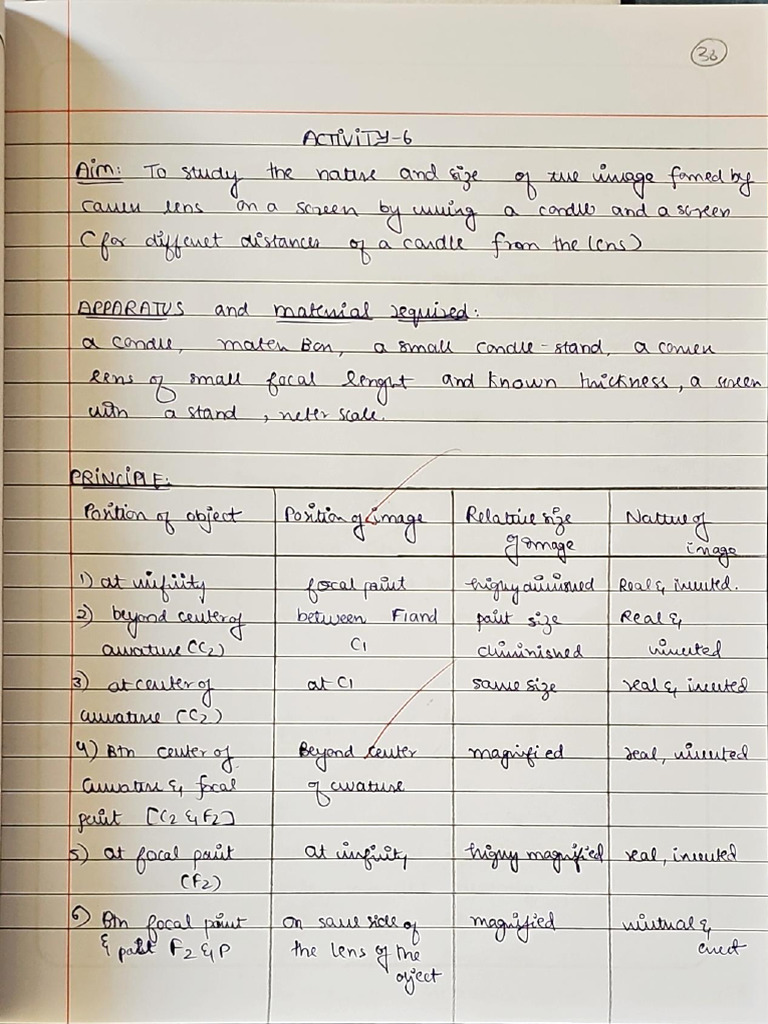 38
ACTIVITY-6
Aim: To study the nature and size of the image formed by
convex lens on a screen by using a candle and a screen
(for different distances of a candle from the lens)
APPARATUS and material required:
a candle, match Box, a small candle-stand, a convex
lens of small focal lenght and known thickness, a screen
with a stand, meter scale.
PRINCIPLE:
Position of object
Position of image
Relative size of image
Nature of image
1) at infinity
focal point
highly diminished
Real & inverted.
2) beyond center of
curvature (C2)
between F1 and
C1
point size
diminished
Real &
inverted
3) at center of
curvature (C2)
at C1
same size
real & inverted
4) Btn center of
curvature & focal
point [C2 & F2]
Beyond center
of curvature
magnified
real, inverted
5) at focal point
(F2)
at infinity
highly magnified
real, inverted
6) Btn focal point
& F2 & P
on same side of
the lens of the
object
magnified
virtual &
erect